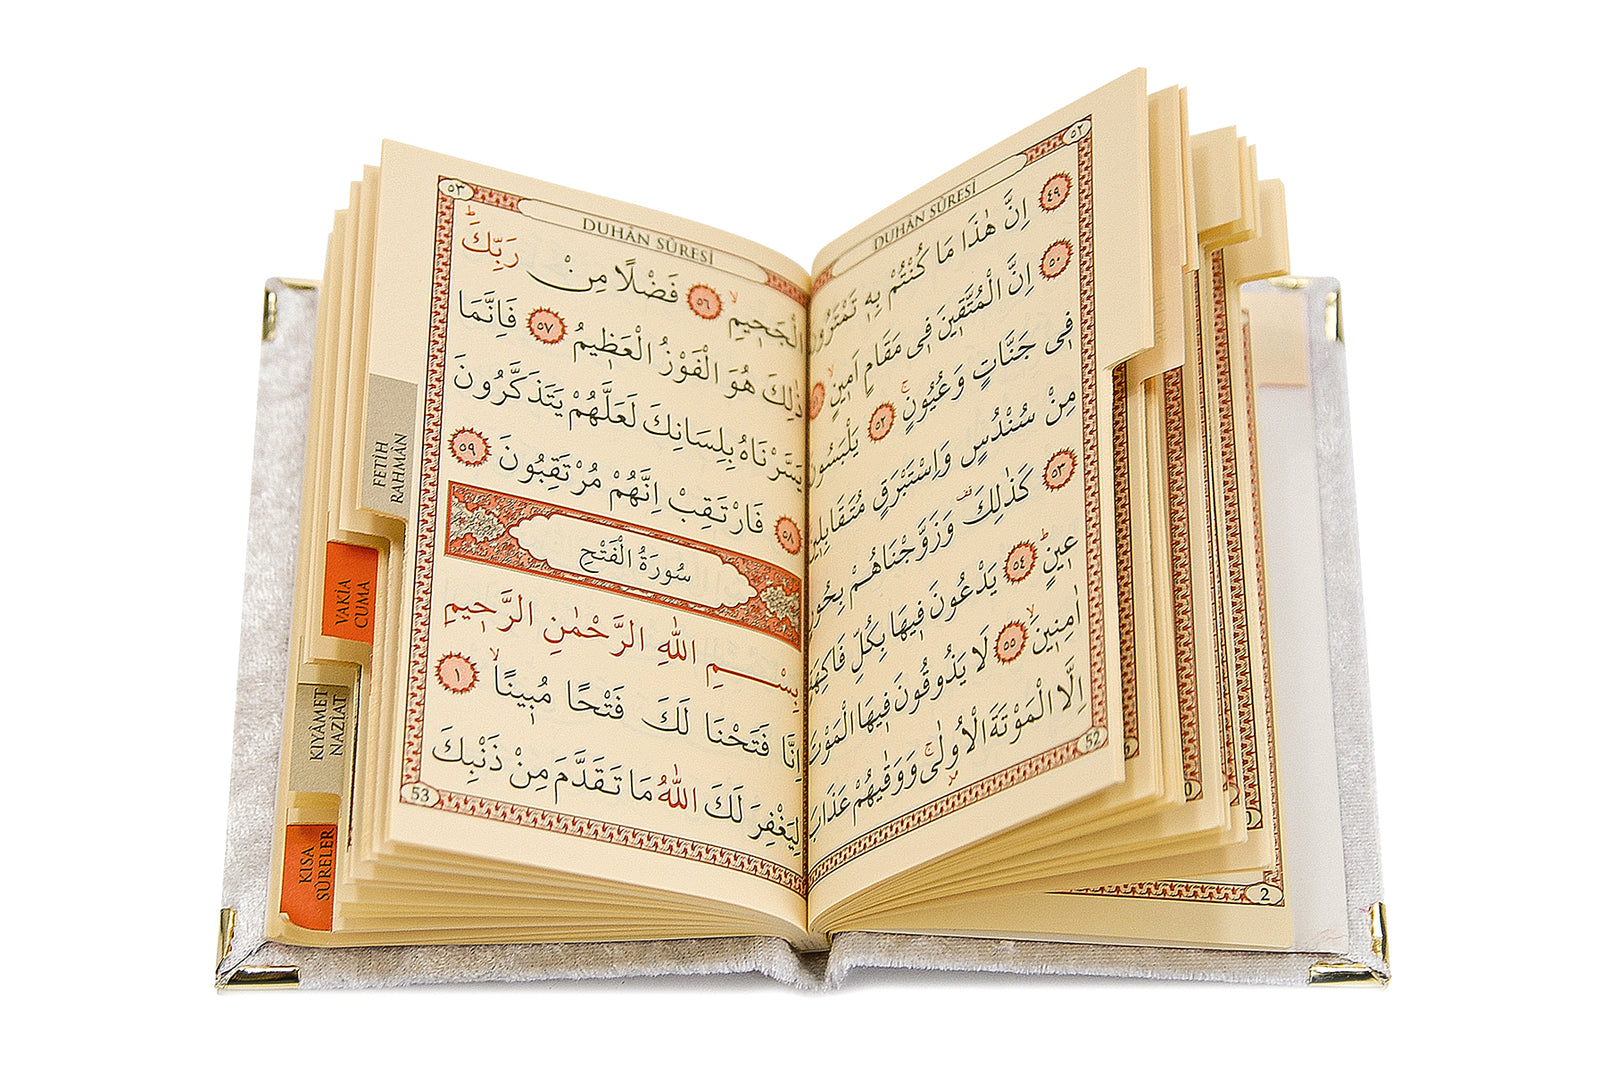 ٥٢
DUHÂN SÛRESİ
٤٩ اِنَّ هٰذَا مَا كُنْتُمْ بِهٖ تَمْتَرُونَ
٥٠ اِنَّ الْمُتَّقٖينَ فٖى مَقَامٍ اَمٖينٍ ٥١
فٖى جَنَّاتٍ وَعُيُونٍ ٥٢ يَلْبَسُونَ
مِنْ سُنْدُسٍ وَاِسْتَبْرَقٍ مُتَقَابِلٖينَ
٥٣ كَذٰلِكَ وَزَوَّجْنَاهُمْ بِحُورٍ
عٖينٍ ٥٤ يَدْعُونَ فٖيهَا بِكُلِّ فَاكِهَةٍ
اٰمِنٖينَ ٥٥ لَا يَذُوقُونَ فٖيهَا الْمَوْتَ
اِلَّا الْمَوْتَةَ الْاُولٰى وَوَقٰيهُمْ عَذَابَ
52
٥٣
DUHÂN SÛRESİ
الْجَحٖيمِ ٥٦ فَضْلًا مِنْ رَبِّكَ
ذٰلِكَ هُوَ الْفَوْزُ الْعَظٖيمُ ٥٧ فَاِنَّمَا
يَسَّرْنَاهُ بِلِسَانِكَ لَعَلَّهُمْ يَتَذَكَّرُونَ
٥٨ فَارْتَقِبْ اِنَّهُمْ مُرْتَقِبُونَ ٥٩
سُورَةُ الْفَتْحِ
بِسْمِ اللّٰهِ الرَّحْمٰنِ الرَّحٖيمِ
اِنَّا فَتَحْنَا لَكَ فَتْحًا مُبٖينًا ١
لِيَغْفِرَ لَكَ اللّٰهُ مَا تَقَدَّمَ مِنْ ذَنْبِكَ
53
FETİH
RAHMÂN
VAKİA
CUMA
KIYÂMET
NAZİAT
KISA
SÛRELER
2